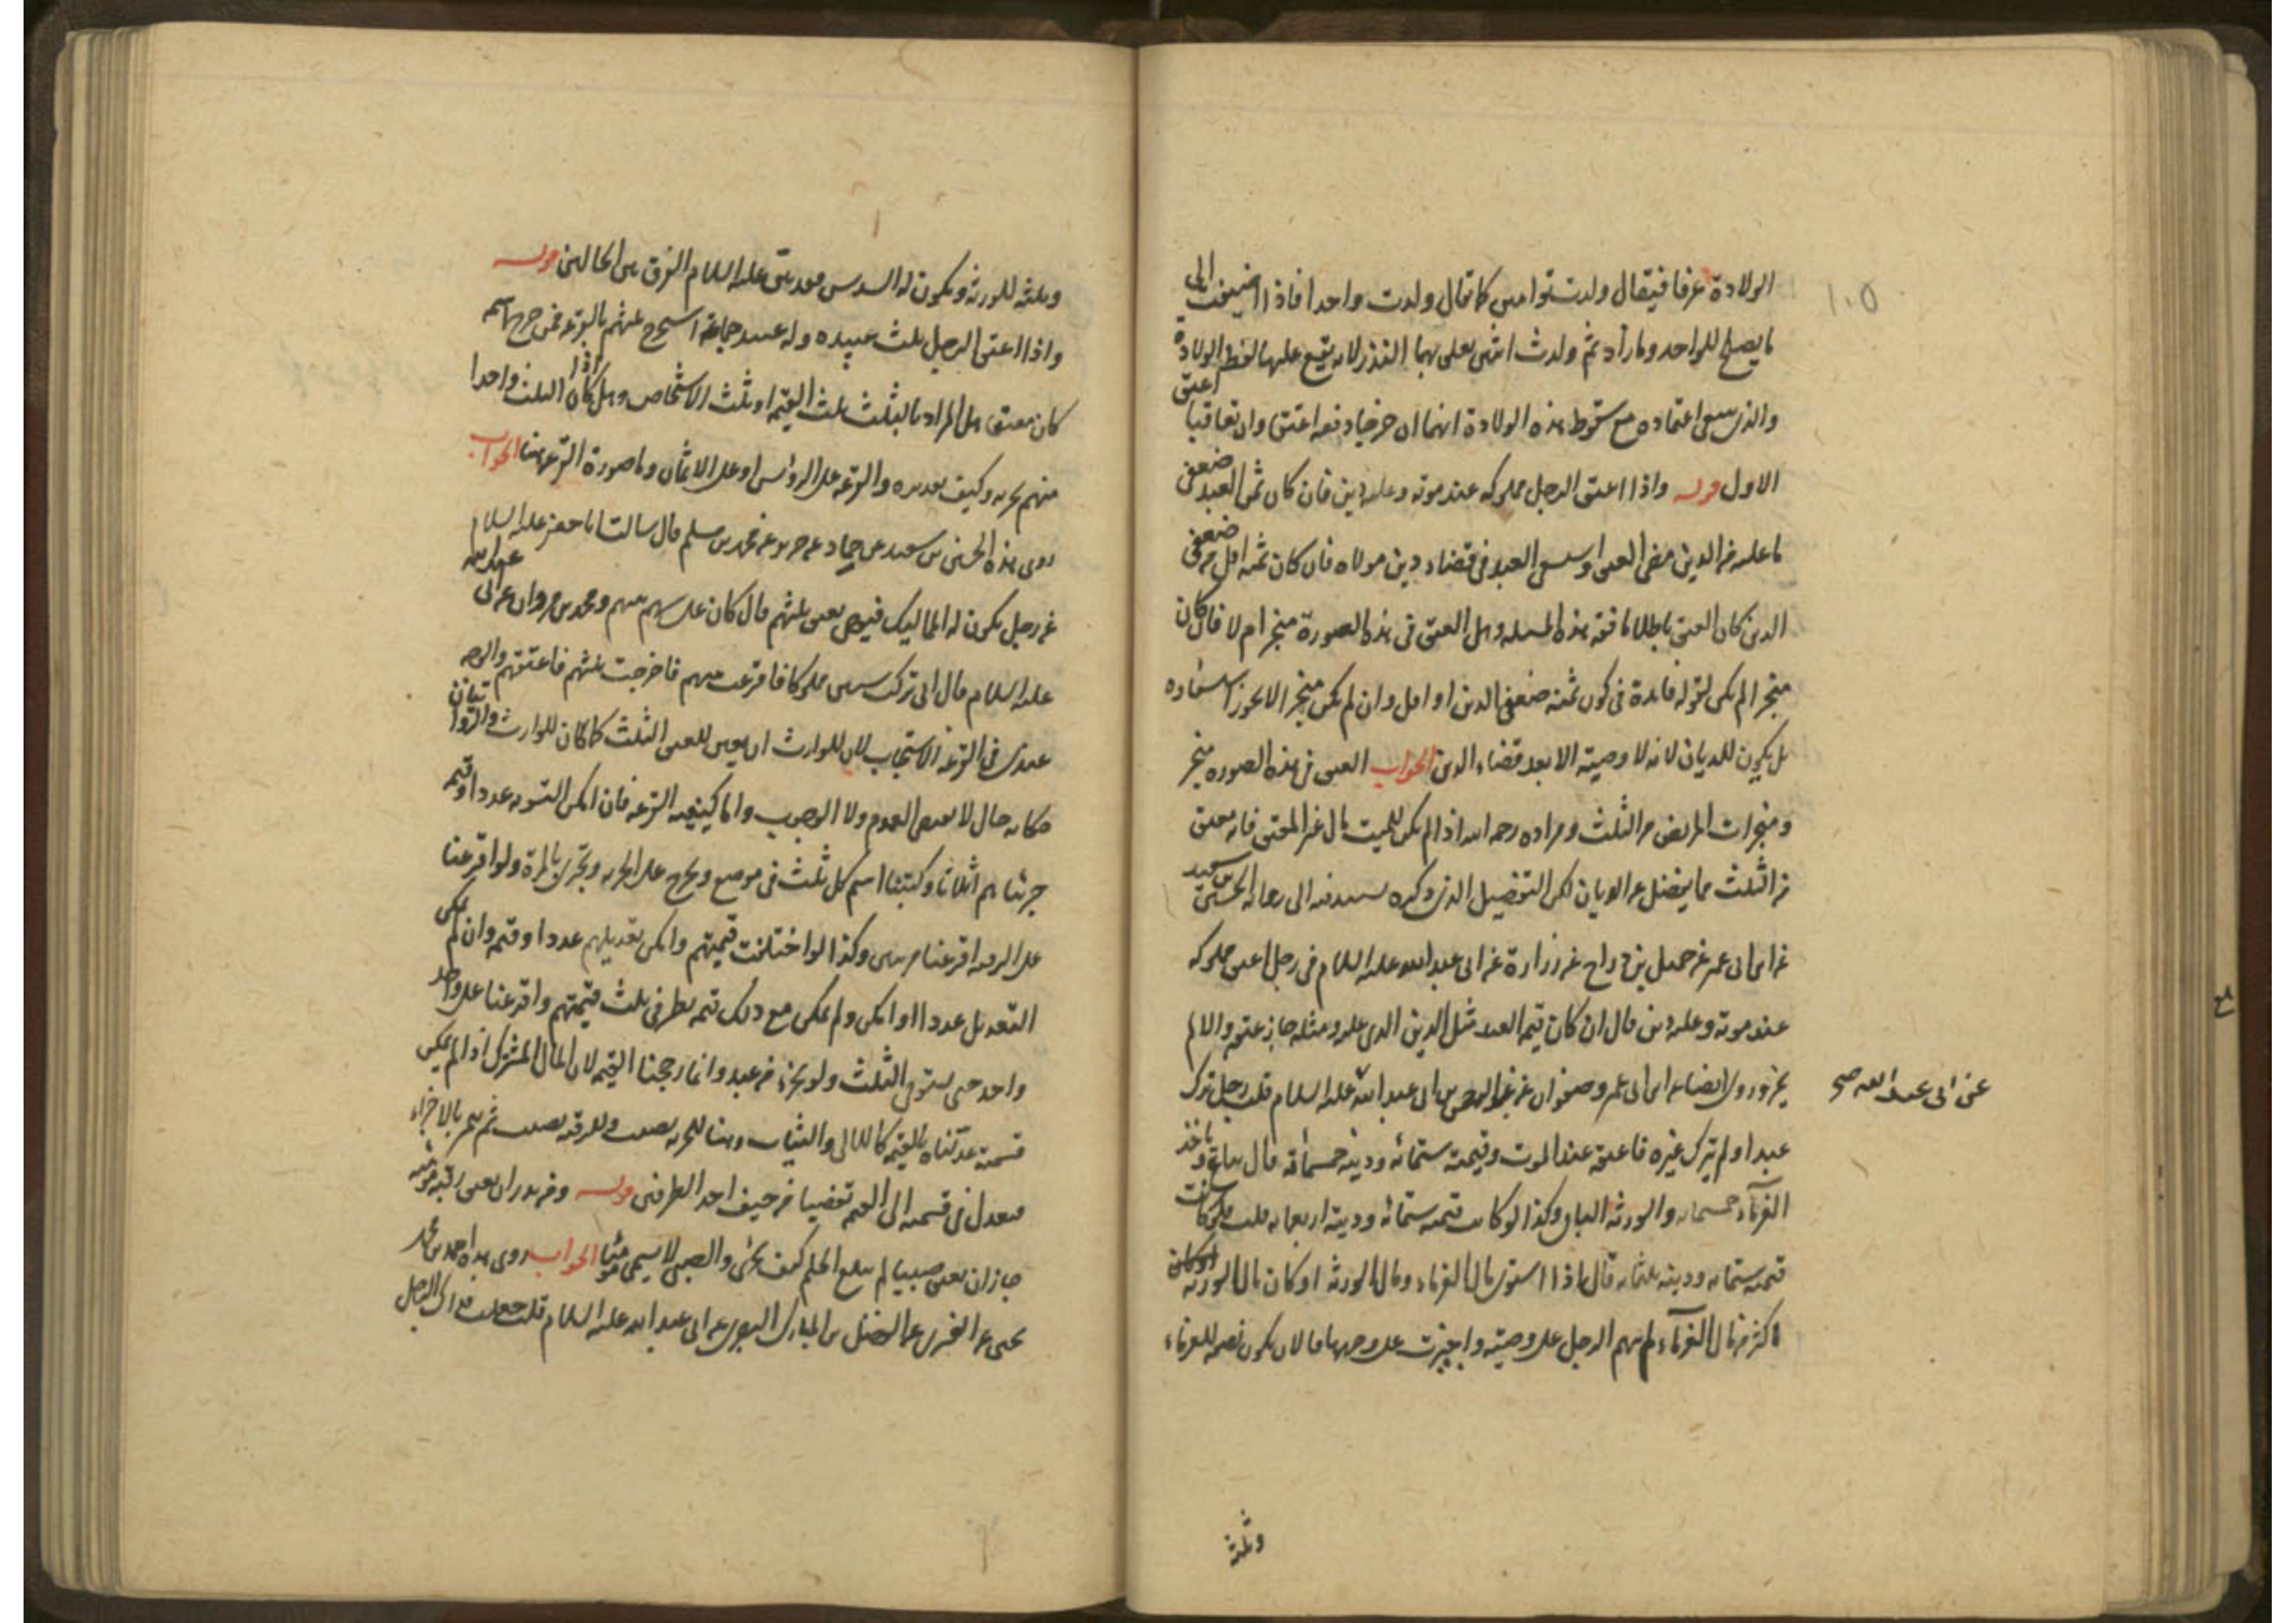 ١٠٥
الولادة عرفا فيقال ولدت توامين كما تقال ولدت واحدا فاذا اضيفت الى
ما يصلح للواحد وما زاد ثم ولدت اثنين تعلق بهما النذر لانه يقع عليهما لفظ الولادة
والذى ينبغى اعتماده مع سقوط هذه الولادة انهما ان خرجا دفعه اعتقا وان تعاقبا اعتق
الاول قوله واذا اعتق الرجل مملوكه عند موته وعليه دين فان كان ثمن العبد ضعفى
ما عليه من الدين مضى العتق واستسعى العبد فى قضاء دين مولاه فان كان ثمنه اقل من ضعفى
الدين كان العتق باطلا ما فقه هذه المسله وهل العتق فى هذه الصورة منجز ام لا فان كان
منجزا لم يكن لقوله فائدة فى كون ثمنه ضعفى الدين او اقل وان لم يكن منجزا لا يجوز استسعاده
بل يكون للديان لانه لا وصية الا بعد قضاء الدين الجواب العتق فى هذه الصوره منجز
ومنجزات المريض من الثلث ومراده رحمه الله اذا لم يكن للميت مال غير المعتق فانه يعتق
من الثلث مما يفضل عن الديان لكن التفضيل الذى ذكره يستند فيه الى رواية الحسين بن سعيد
عن ابن ابى عمير عن جميل بن دراج عن زرارة عن ابى عبد الله عليه السلام فى رجل اعتق مملوكه
عند موته وعليه دين قال ان كان قيمة العبد مثل الدين الذى عليه ومثله جاز عتقه والا لم
يجز وروى ايضا عن ابن ابى عمير وصفوان عن عبد الرحمن عن ابى عبد الله عليه السلام قلت رجل ترك
عن ابى عبد الله صح
عبدا ولم يترك غيره فاعتقه عند الموت وقيمته ستمائه ودينه خمسمائة قال يباع وياخذ
الغرماء خمسمائه والورثه الباقى وكذا لو كانت قيمته ستمائه ودينه اربعمائه قلت فلو كانت
قيمته ستمائه ودينه ثلثمائه قال اذا استوى مال الغرماء ومال الورثه او كان مال الورثه
اكثر من مال الغرماء لم يتهم الرجل على وصيته واجيزت على وجهها فالان يكون نصفه للغرماء
وثلثه
وثلثه للورثه ويكون له السدس فقد بين عليه السلام الفرق بين الحالين قوله
واذا اعتق الرجل ثلث عبيده وله عبيد جماعة استخرج ثلثهم بالقرعه فمن خرج اسمه
كان معتقا هل المراد بالثلث ثلث القيمه او ثلث الاشخاص وهل اذا كان الثلث واحدا
منهم يجزيه وكيف تعديله والقرعه على الروس او على الاثمان وما صورة القرعه هنا الجواب
روى هذه الحسين بن سعيد عن حماد عن حريز عن محمد بن مسلم قال سالت ابا جعفر عليه السلام
عن رجل يكون له المماليك فيوصى بعتق ثلثهم قال كان على يسهم بينهم ومحمد بن مروان عن ابى عبد الله
عليه السلام قال ان ابى ترك ستين مملوكا فاقرعت بينهم فاخرجت ثلثهم فاعتقتهم والوجه
عندى فى القرعه الاستحباب لان للوارث ان يعين للعتق الثلث كما كان للوارث والروايتان
حكايه حال لا تعطى العموم ولا الوجوب واما كيفيه القرعه فان امكن التسويه عددا وقيمه
جزئناهم اثلاثا وكتبنا اسم كل ثلث فى موضع ويخرج على الحريه وتجزى بالمرة ولو اقرعنا
على الرقيه اقرعنا مرتين وكذا لو اختلفت قيمتهم وامكن تعديلهم عددا وقيمه وان لم يمكن
التعديل عددا او امكن ولم يمكن مع ذلك قيمه نظر فى ثلث قيمتهم واقرعنا على واحد
واحد حتى يستوفى الثلث ولو بجزء من عبد وانما رجحنا القيمه لان المال المشترك اذا لم يمكن
قسمته عدلناه بالقيمه كاللالى والثياب وهنا للحريه نصيب وللرقيه نصيب ثم لم نجز بالاجزاء
فيعدل فى قسمته الى القيمه تفضيا من حيف احد الطرفين قوله ومن نذر ان يعتق رقبه مومنه
جاز ان يعتق صبيا لم يبلغ الحلم كيف يجزى والصبى لا يسمى مومنا الجواب روى هذا احمد بن محمد بن
يحيى عن العمرى عن الفضل بن المبارك البصرى عن ابى عبد الله عليه السلام قلت جعلت فداك الرجل